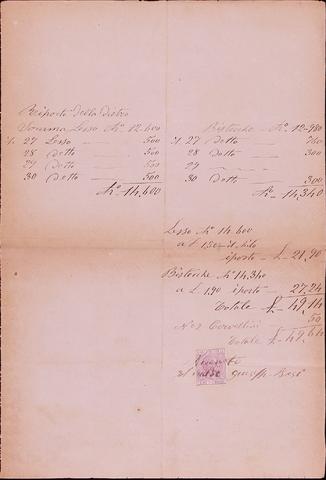 Riporto della dietro
Somma Lesso Kº 12.600
Al 27 Lesso — 500
28 detto — 500
29 detto — 500
30 detto — 500
Kº 14,600
Bistecche Kº 12-980
Al 27 detto — 760
28 detto — 300
29
30 detto — 300
Kº 14,340
Lesso Kº 14.600
a £ 1,50 il kilo
iporto £ 21,90
Bistecche Kº 14,340
a £. 1.90 iporto 27,24
Totale £ 49,14
Nº 2 Cervellini 50
Totale £ 49,64